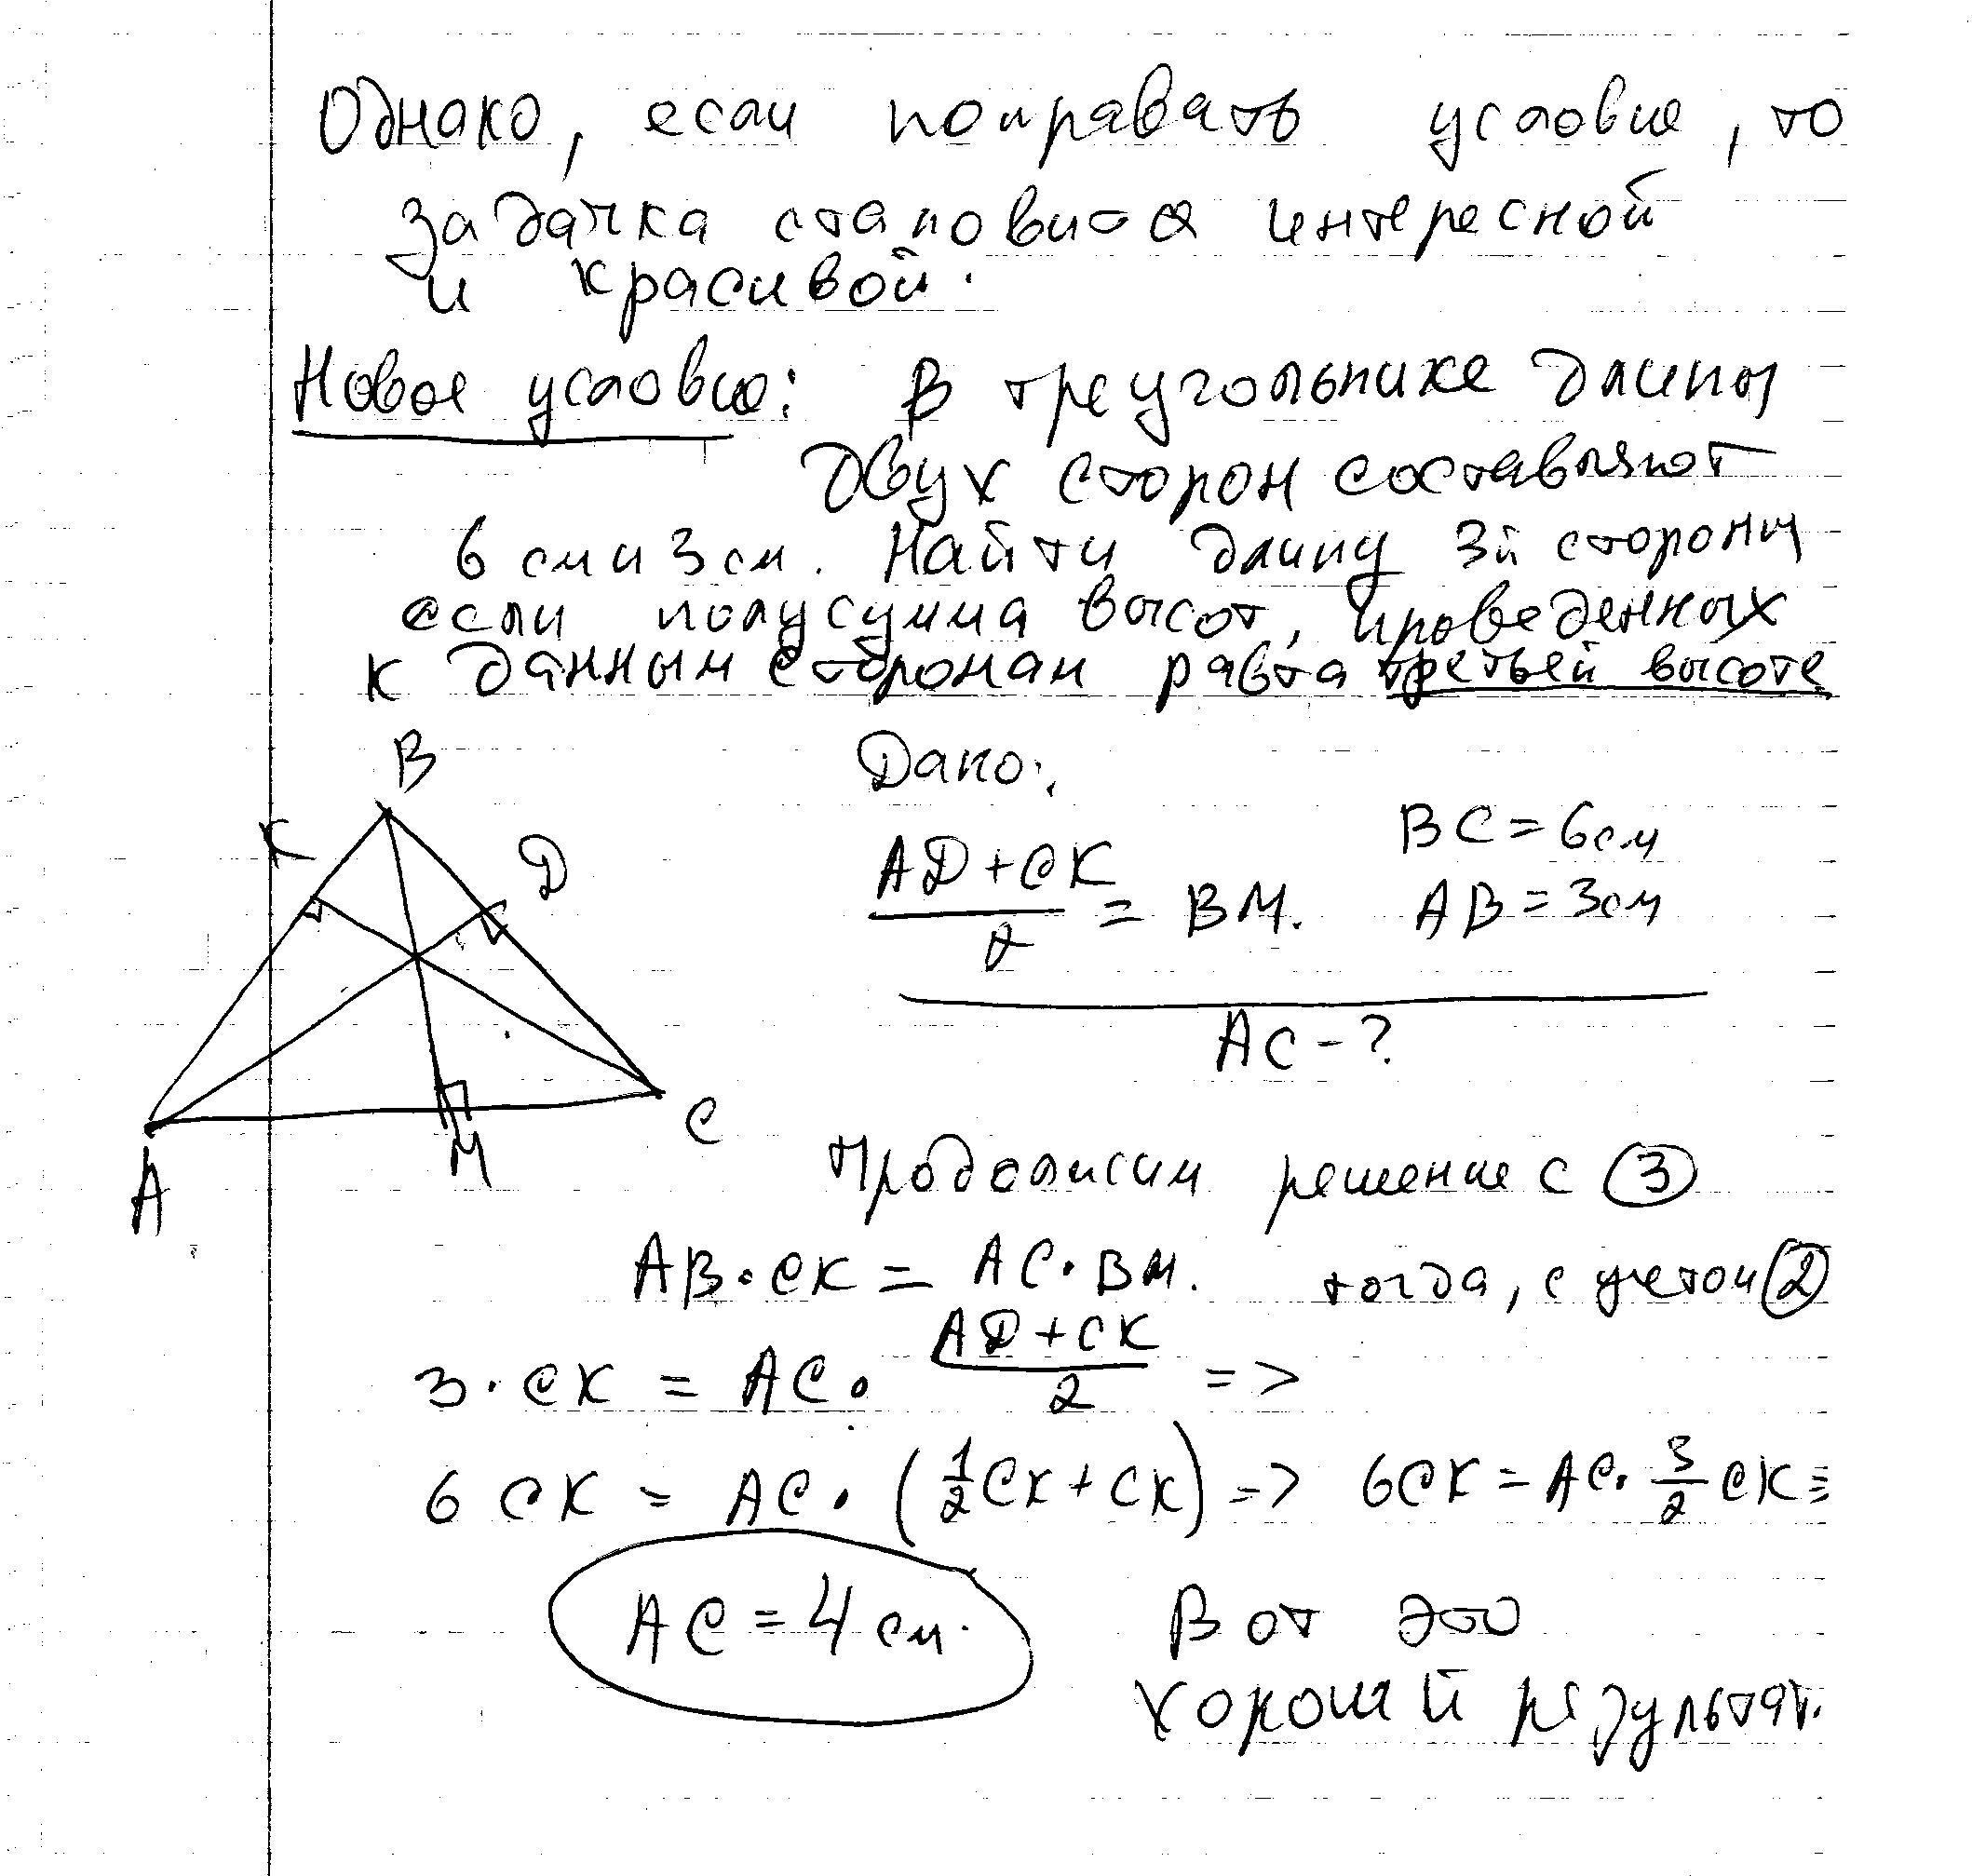 Однако, если поправать условие, то
задачка становится интересной
и красивой.
Новое условие: В треугольнике длины
двух сторон составляют
6 см и 3 см. Найти длину 3й стороны
если полусумма высот, проведенных
к данным сторонам равна третьей высоте
B
K
D
A
M
C
Дано:
AD + CK / 2 = BM.
BC = 6см
AB = 3см
AC - ?
Продолжим решение с ③
AB · CK = AC · BM. тогда, с учетом ②
3 · CK = AC · AD + CK / 2 =>
6 CK = AC · (1/2 CK + CK) => 6CK = AC · 3/2 CK =
AC = 4 см.
Вот это
хороший результат.